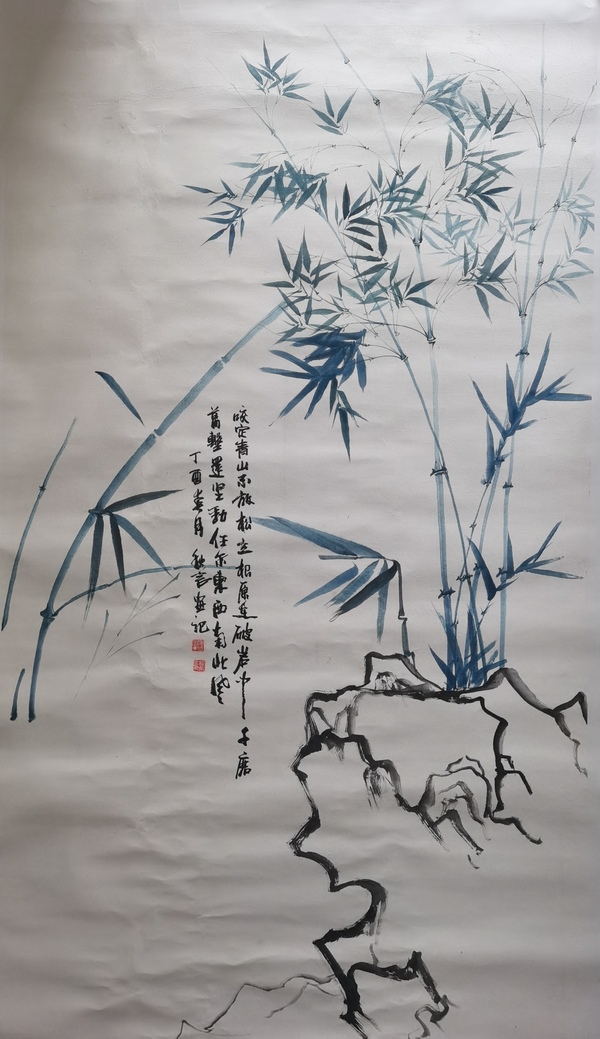 咬定青山不放松立根原在破岩中千磨
萬擊還坚劲任尔東西南北風
丁酉春月秋言画记